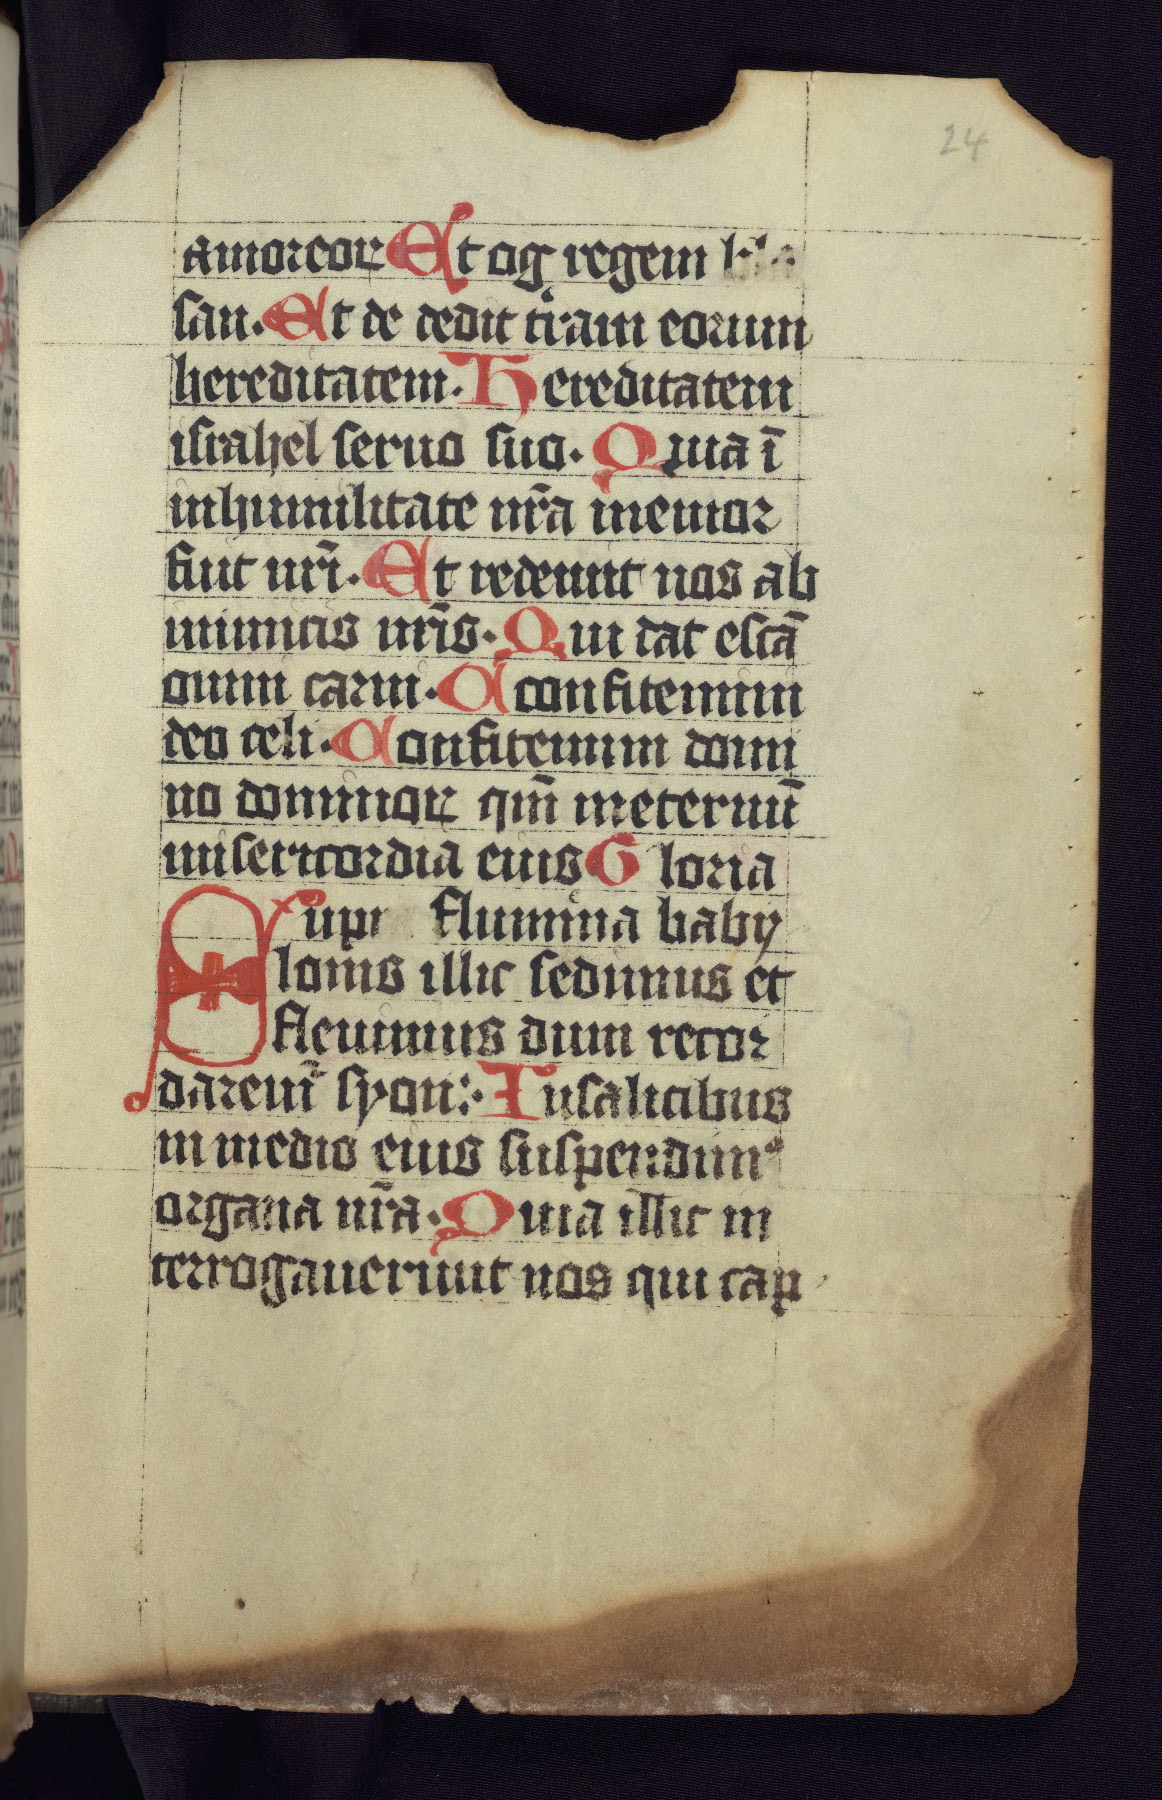 24
amoreoꝝ Et og regem
san. Et de dedit t̅ram eorum
hereditatem. Hereditatem
israhel seruo suo. Quia i̅
inhumilitate nr̅a memor
fuit nr̅i. Et redemit nos ab
inimicis nr̅is. Qui dat esca̅
omni carni. Confitemini
deo celi. Confitemini domi
no dominoꝝ qm̅ ineternu̅
misericordia eius Gloria
Sup flumina baby
lonis illic sedimus et
fleuimus dum recor
daremꝰ syon: In salicibus
in medio eius suspendimꝰ
organa nr̅a. Quia illic in
terrogauerunt nos qui cap